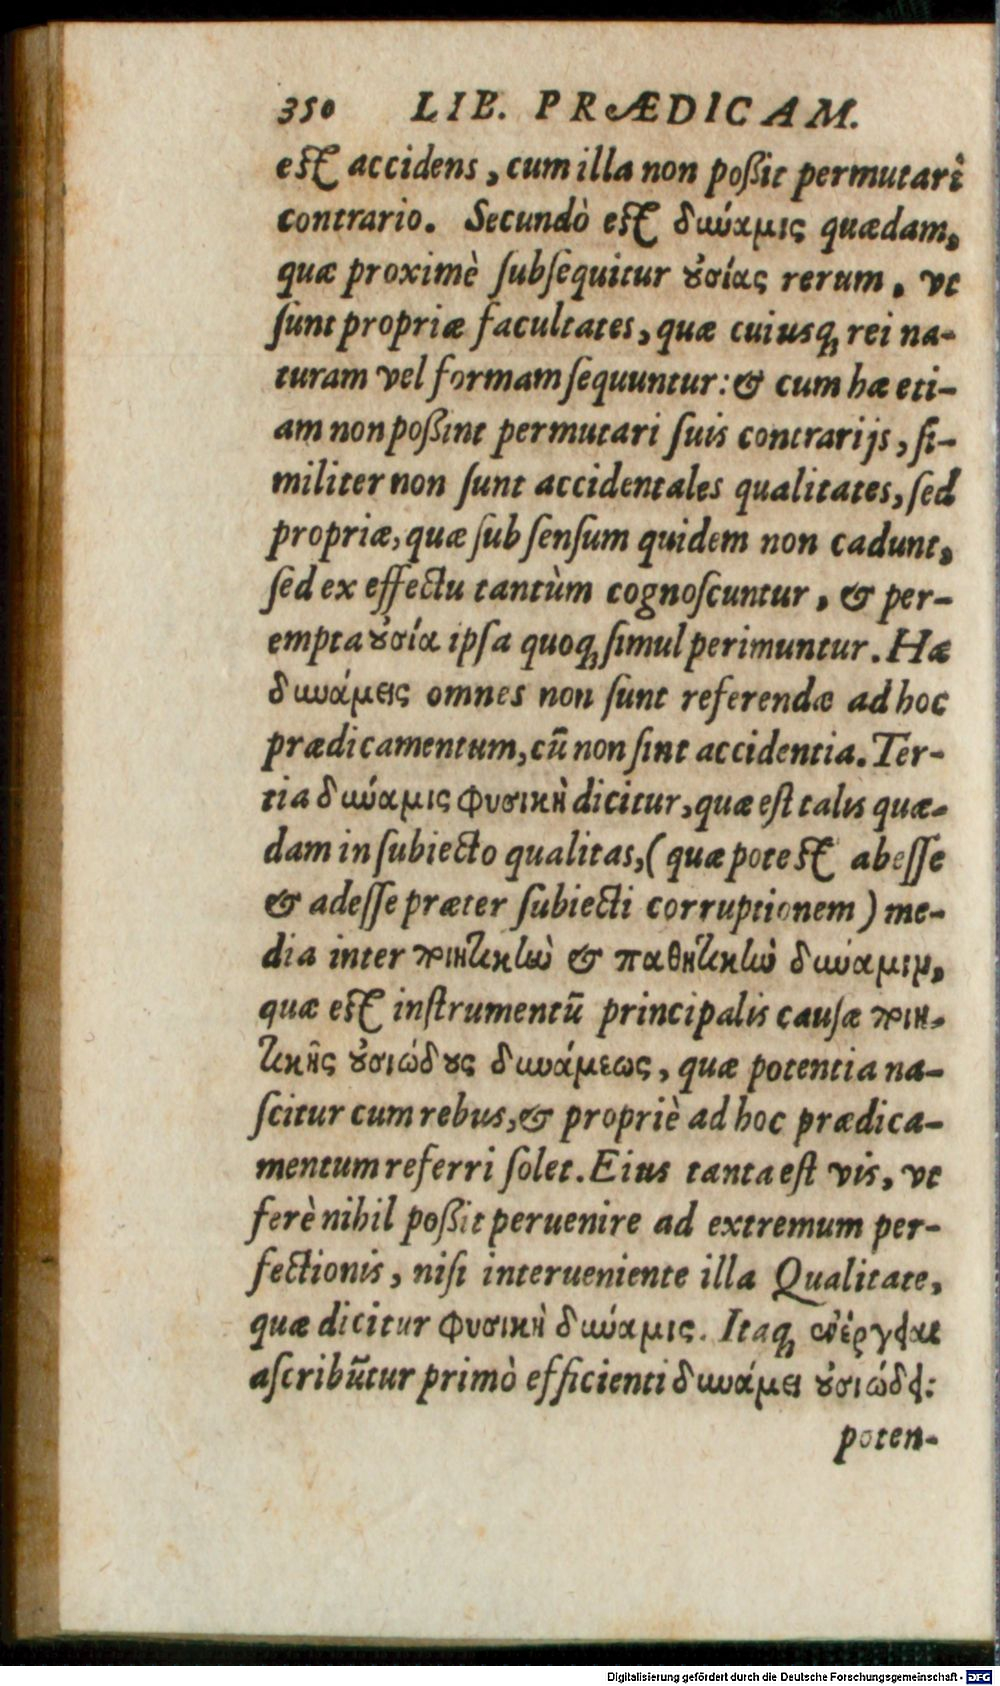 350 LIB. PRÆDICAM.
est accidens, cum illa non poßit permutari
contrario. Secundò est δύναμις quædam,
quæ proximè ſubſequitur ȣσίας rerum, vt
ſunt propriæ facultates, quæ cuiusq́; rei na-
turam vel formam ſequuntur: & cum hæ eti-
am non poßint permutari ſuis contrarijs, ſi-
militer non ſunt accidentales qualitates, ſed
propriæ, quæ ſub ſenſum quidem non cadunt,
ſed ex effectu tantùm cognoſcuntur, & per-
empta ȣσία ipſa quoq́; ſimul perimuntur. Hæ
δυνάμεις omnes non ſunt referendæ ad hoc
prædicamentum, cū non ſint accidentia. Ter-
tia δύναμις φυσικὴ dicitur, quæ eſt talis quæ-
dam in ſubiecto qualitas, (quæ potest abeſſe
& adeſſe præter ſubiecti corruptionem) me-
dia inter ποιητικὴν & παθητικὴν δύναμιν,
quæ est inſtrumentū principalis cauſæ ποιη-
τικῆς ȣσιώδȣς δυνάμεως, quæ potentia na-
ſcitur cum rebus, & propriè ad hoc prædica-
mentum referri ſolet. Eius tanta eſt vis, vt
ferè nihil poßit peruenire ad extremum per-
fectionis, niſi interueniente illa Qualitate,
quæ dicitur φυσικὴ δύναμις. Itaq́; ἐνέργειαι
aſcribūtur primò efficienti δυνάμει ȣσιώδει:
poten-
Digitalisierung gefördert durch die Deutsche Forschungsgemeinschaft - DFG